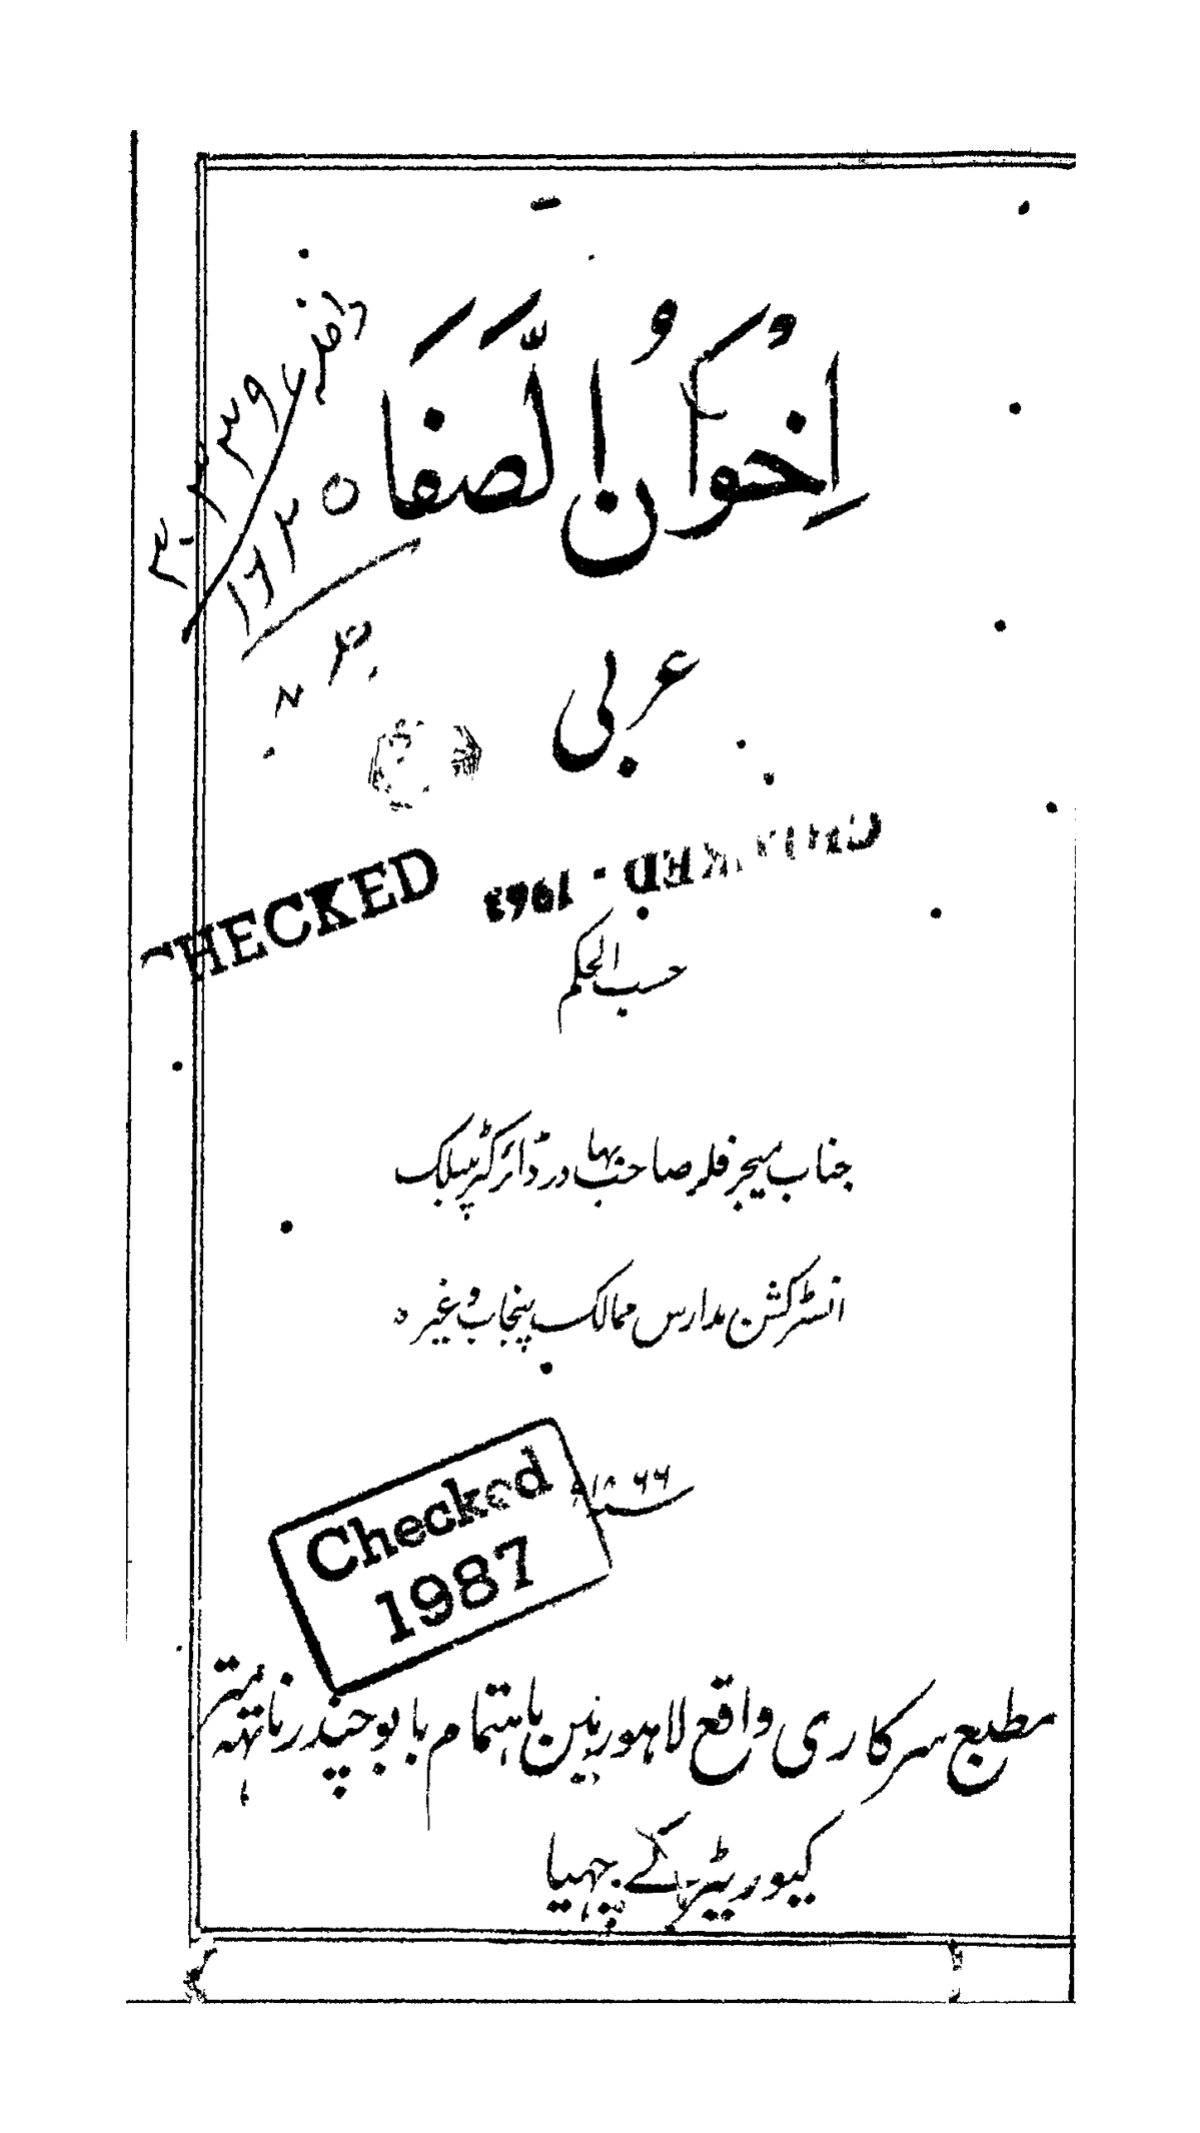 اِخْوَانُ الصَّفَا
عربی
CHECKED
CHECKED - 1963
حسب الحکم
جناب میجر فلر صاحب بہادر ڈائرکٹر پبلک
انسٹرکشن مدارس ممالک پنجاب وغیرہ
سنہ ۱۸۶۶ء
Checked
1987
مطبع سرکاری واقع لاہور مین باہتمام بابو چندر ناتھ متر
کیوریٹر کے چھپا